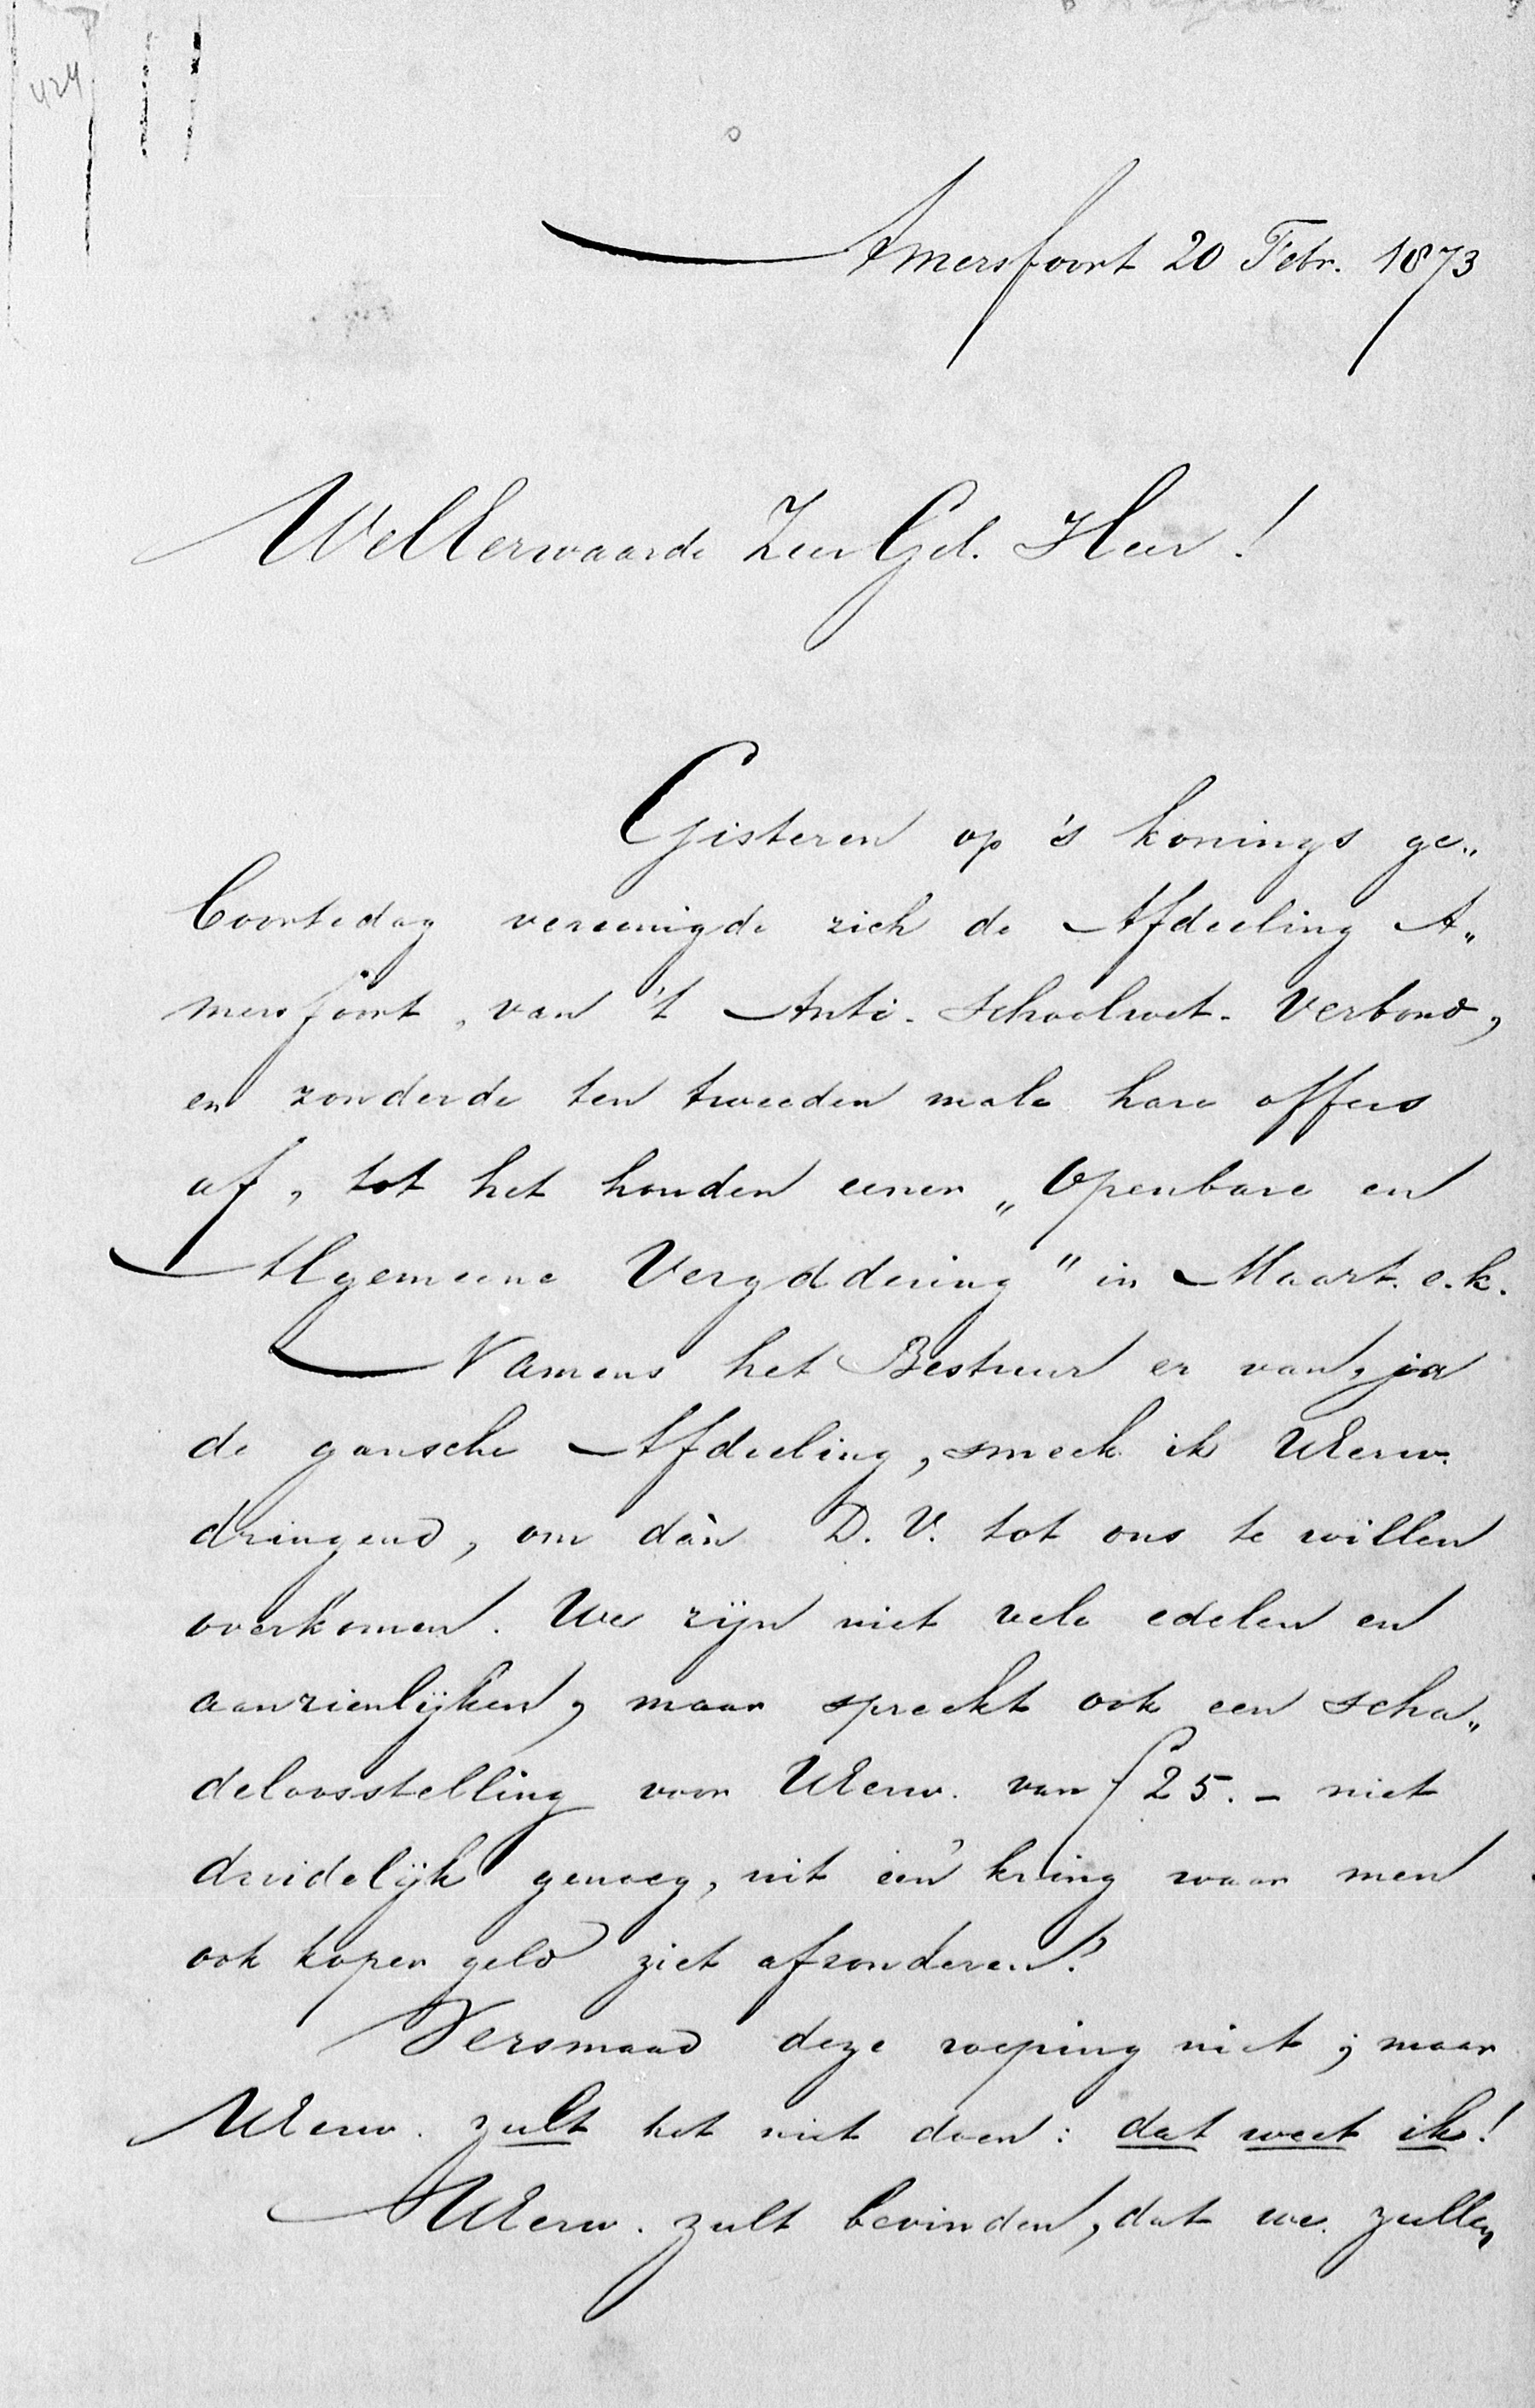 424
Amersfoort 20 Febr. 1873
WelEerwaarde ZeerGel. Heer!
Gisteren op 's konings ge„
boortedag vereenigde zich de Afdeeling A„
mersfoort, van 't Anti-Schoolwet-Verbond,
en zonderde ten tweeden male hare offers
af, tot het houden eener „Openbare en
Algemeene Vergaddering" in Maart. e.k.
Namens het Bestuur er van, ja
de gansche Afdeeling, smeek ik UEerw.
dringend, om dàn D.V. tot ons te willen
overkomen. We zijn niet vele edelen en
aanzienlijken, maar spreekt ook een scha„
deloosstelling voor UEerw. van ƒ25.- niet
duidelijk genoeg, uit één kring waar men
ook koper geld ziet afzonderen?
Versmaad deze roeping niet; maar
UEerw. zult het niet doen: dat weet ik!
UEerw. zult bevinden, dat we zullen